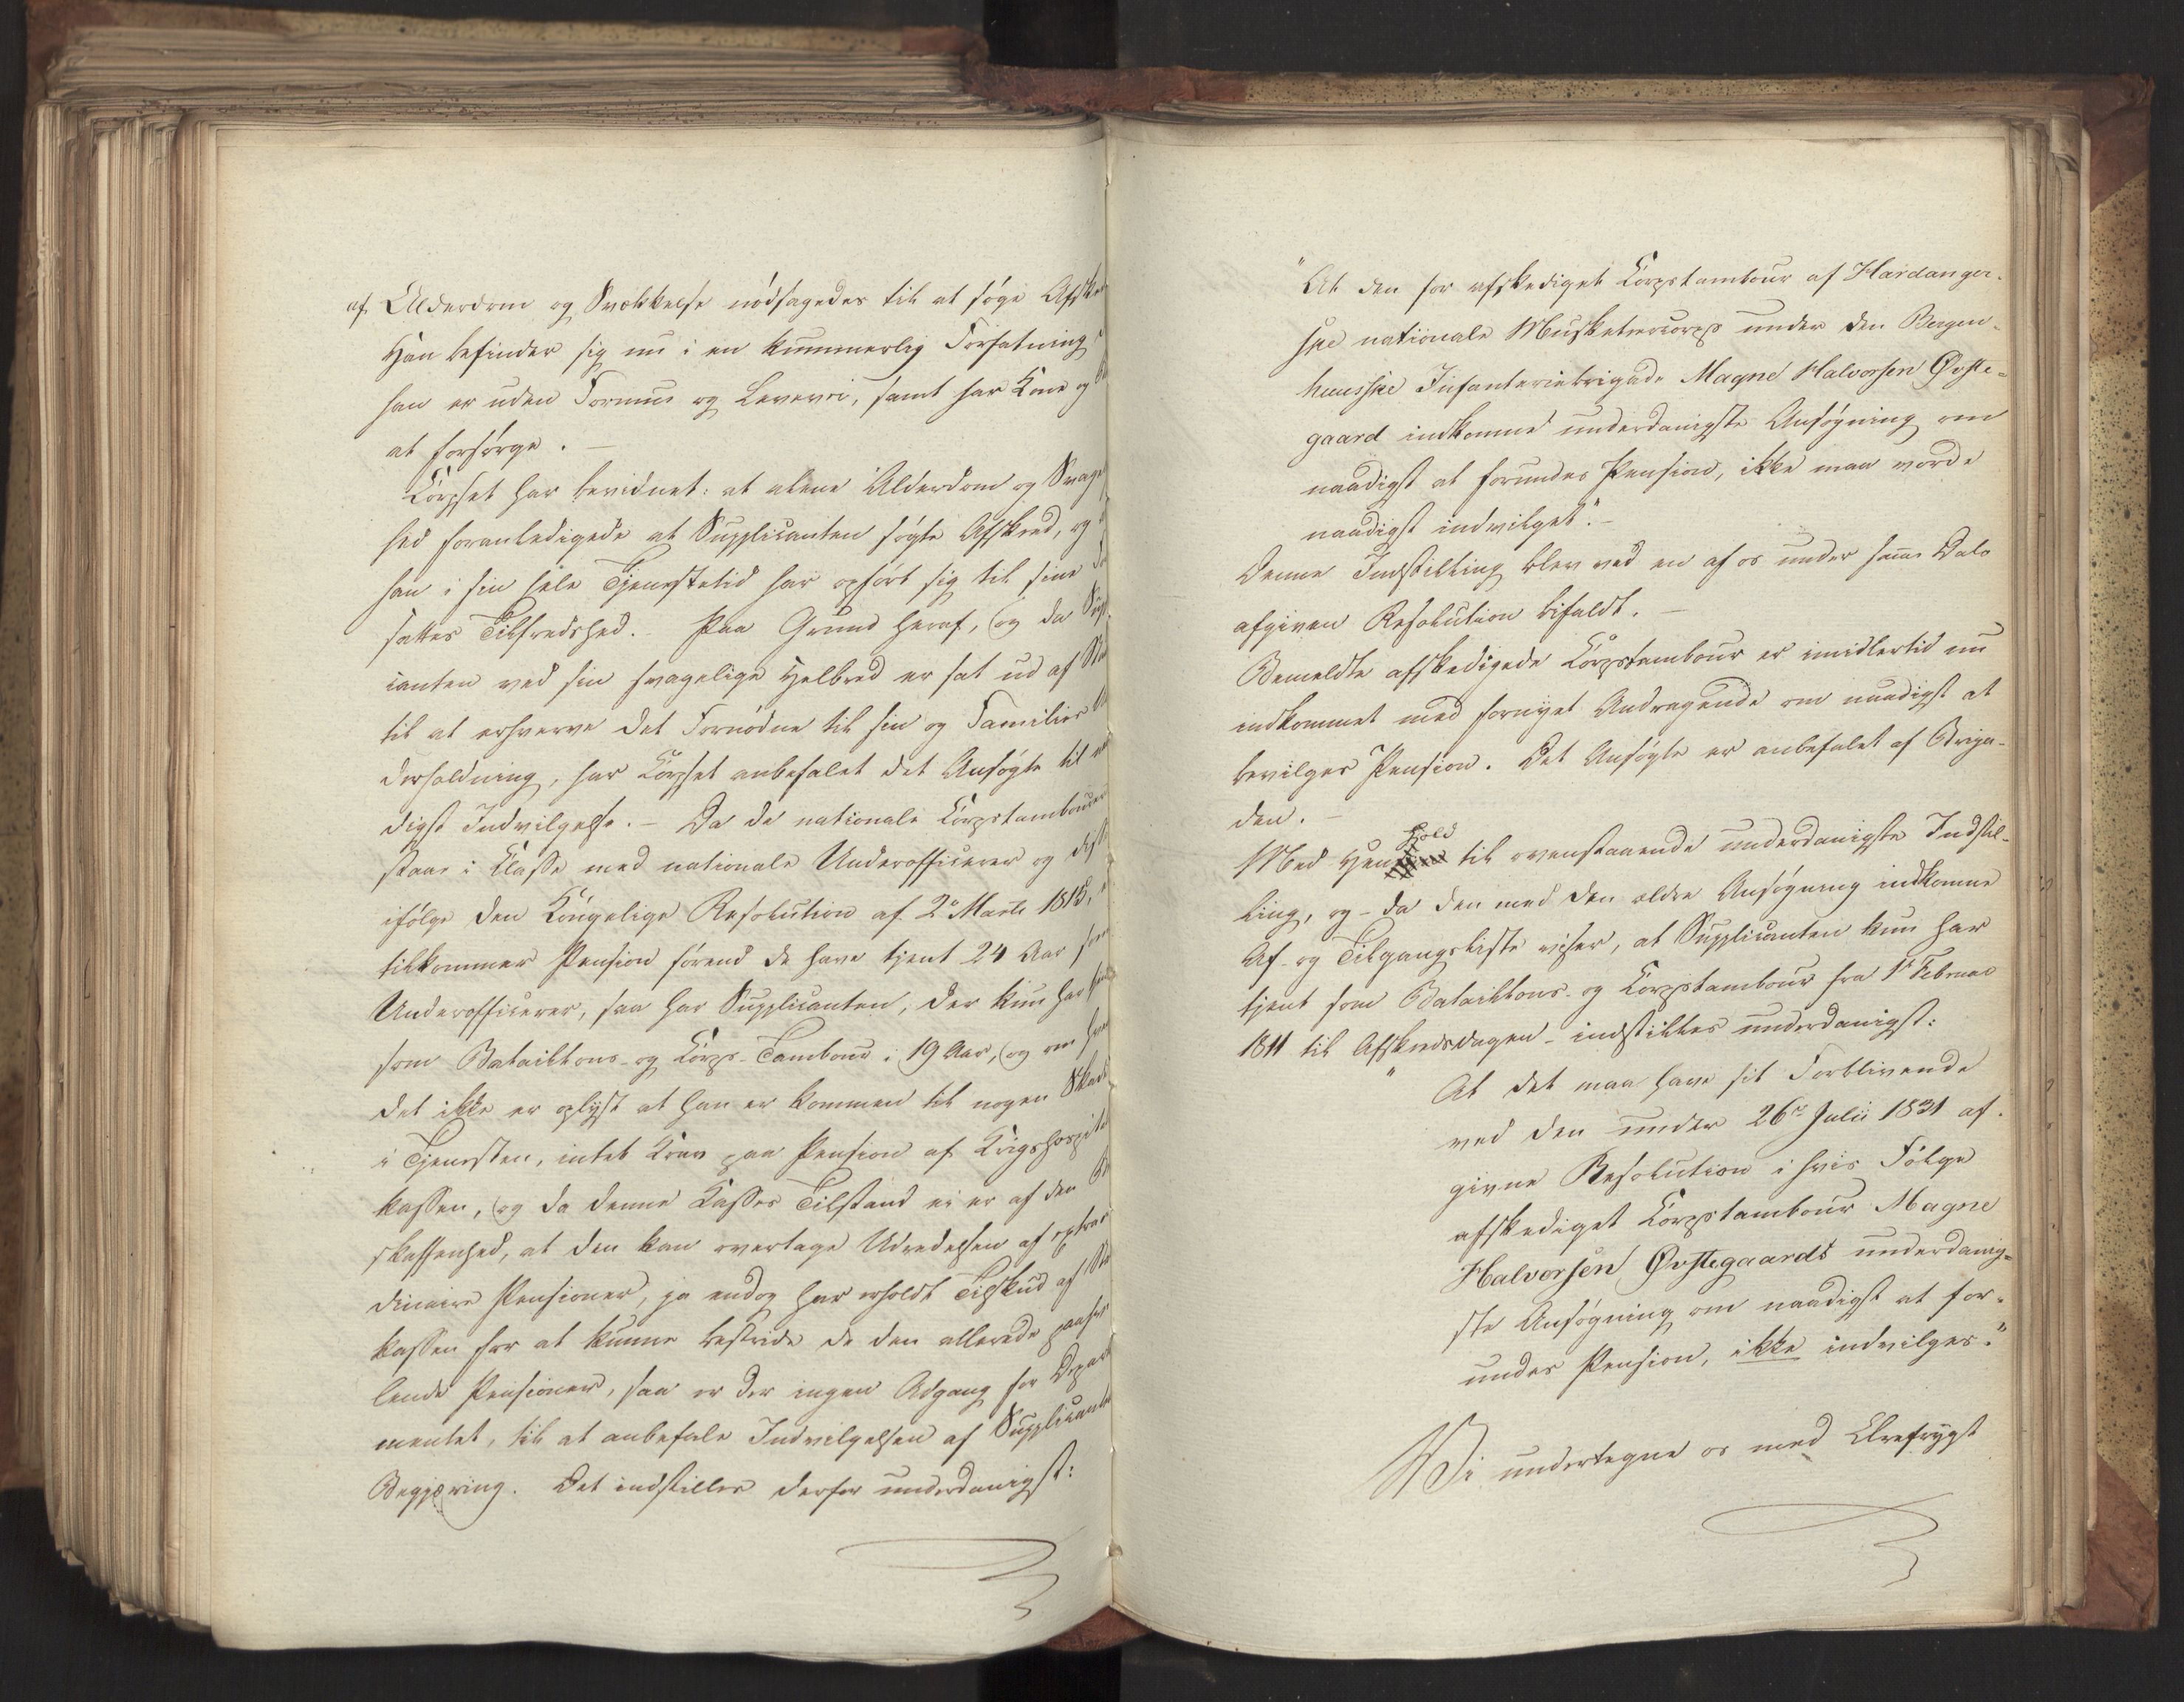 af Alderdom og Svækkelse nödsagedes til at söge Afske
Han befinder sig nu i en kummerlig Forfatning,
han er uden Formue og Levevei, samt har Kone og
at forsörge. —
Corpset har bevidnet: at alene Alderdom og Svage
hed foranledigede at Supplicanten sögte Afskeed, og
han i sin hele Tjenestetid har opfört sig til sine
satter Tilfredshed. Paa Grund heraf, (og da Sup
canten ved sin svagelige Helbred er sat ud af
til at erhverve det Fornödne til sin og Families
derholdning, har Corpset anbefalet det Ansögte til
digst Indvilgelse. — Da de nationale Corpstambourer
staae i Classe med nationale Underofficerer og
ifölge den Kongelige Resolution af 2 Marts 1815,
tilkommer Pension förend de have tjent 24 Aar som
Underofficerer, saa har Supplicanten, der kun har
som Bataillons- og Corps-Tambour i 19 Aar, (og om
det ikke er oplyst at han er kommen til nogen Skade
i Tjenesten, intet Krav paa Pension af Krigshospital
kassen, (og da denne Casses Tilstand ei er af den
skaffenhed, at den kan overtage Udredelsen af extraor
dinaire Pensioner, ja endog har erholdt Tilskud af
kassen for at kunne bestride de den allerede paahvi
lende Pensioner, saa er der ingen Adgang for Depart
mentet, til at anbefale Indvilgelsen af Supplicanten
Begjæring. Det indstilles derfor underdanigst:
"At den for afskediget Corpstambour af Hardanger-
ske nationale Musketeercorps under den Bergen-
huusske Infanteriebrigade Magne Halvorsen Øvste-
gaard indkomne underdanigste Ansögning om
naadigst at forundes Pension, ikke maa vorde
naadigst indvilget." —
Denne Indstilling blev ved en af os under samme Dato
afgiven Resolution bifaldt. —
Bemeldte afskedigede Corpstambour er imidlertid nu
indkommet med fornyet Andragende om naadigst at
bevilges Pension. Det Ansögte er anbefalet af Briga-
den. —
Med Henhold til ovenstaaende underdanigste Indstil-
ling, og — da den med den ældre Ansögning indkomne
Af- og Tilgangsliste viser, at Supplicanten kun har
tjent som Bataillons- og Corpstambour fra 1 Februar
1811 til Afskedsdagen — indstilles underdanigst:
"At det maa have sit Forblivende
ved den under 26de Julii 1831 af-
givne Resolution i hvis Fölge
afskediget Corpstambour Magne
Halvorsen Øvstegaards underdanig-
ste Ansögning om naadigst at for-
undes Pension, ikke indvilges."
Vi undertegne os med Ærefrygt